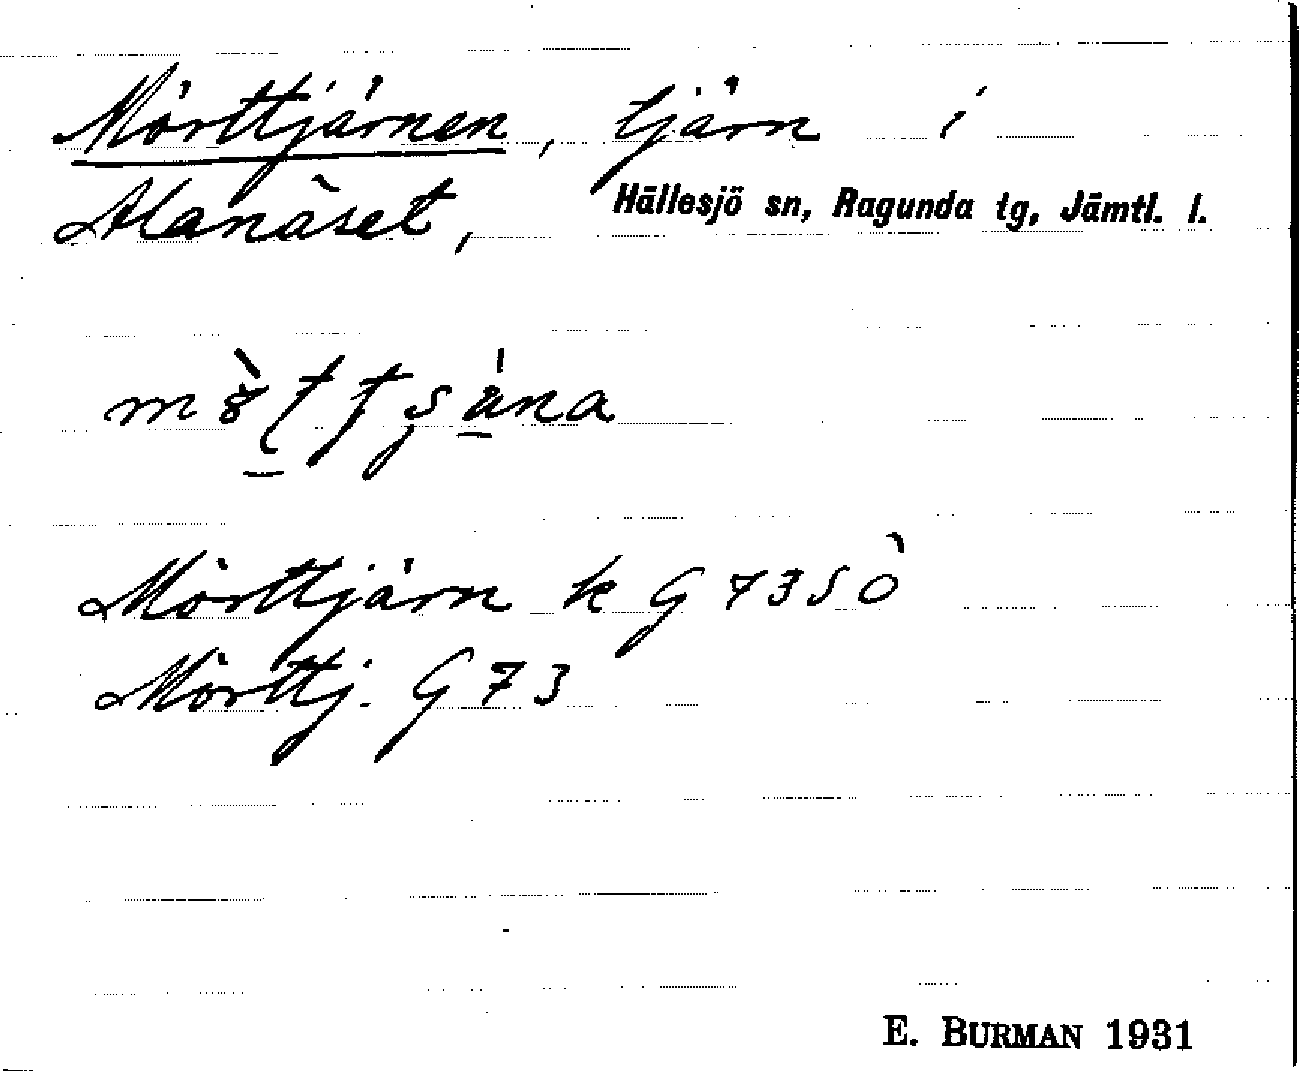 Mörttjärnen, tjärn i
Alanäset, Hällesjö sn, Ragunda tg, Jämtl. l.
Mörttjärn k G 73 SÖ
Mörttj. G 73
E. BURMAN 1931